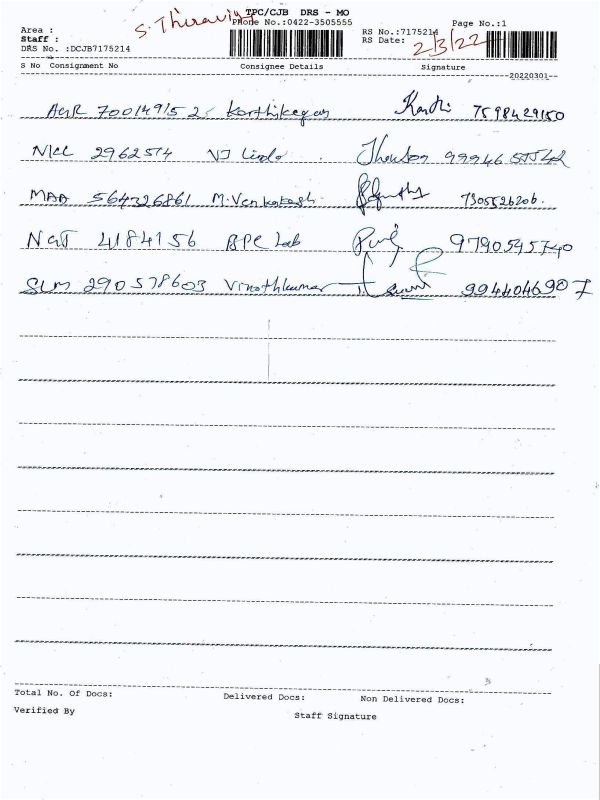 S. Thiravi TPC/CJB DRS - MO
Phone No.:0422-3505555 Page No.:1
Area : RS No.:7175214
Staff : RS Date: 2/3/22
DRS No. :DCJB7175214
S No Consignment No Consignee Details Signature
20220301
AGR 700149152 Karthikeyan Karthi 7598429150
2962574 VJ
MAA 564326861 M. Venkatesh 7305526206
4184156 BPC Lab 9790595740
SLM 290578603 Vinothkumar 9944046907
Total No. Of Docs: Delivered Docs: Non Delivered Docs:
Verified By Staff Signature